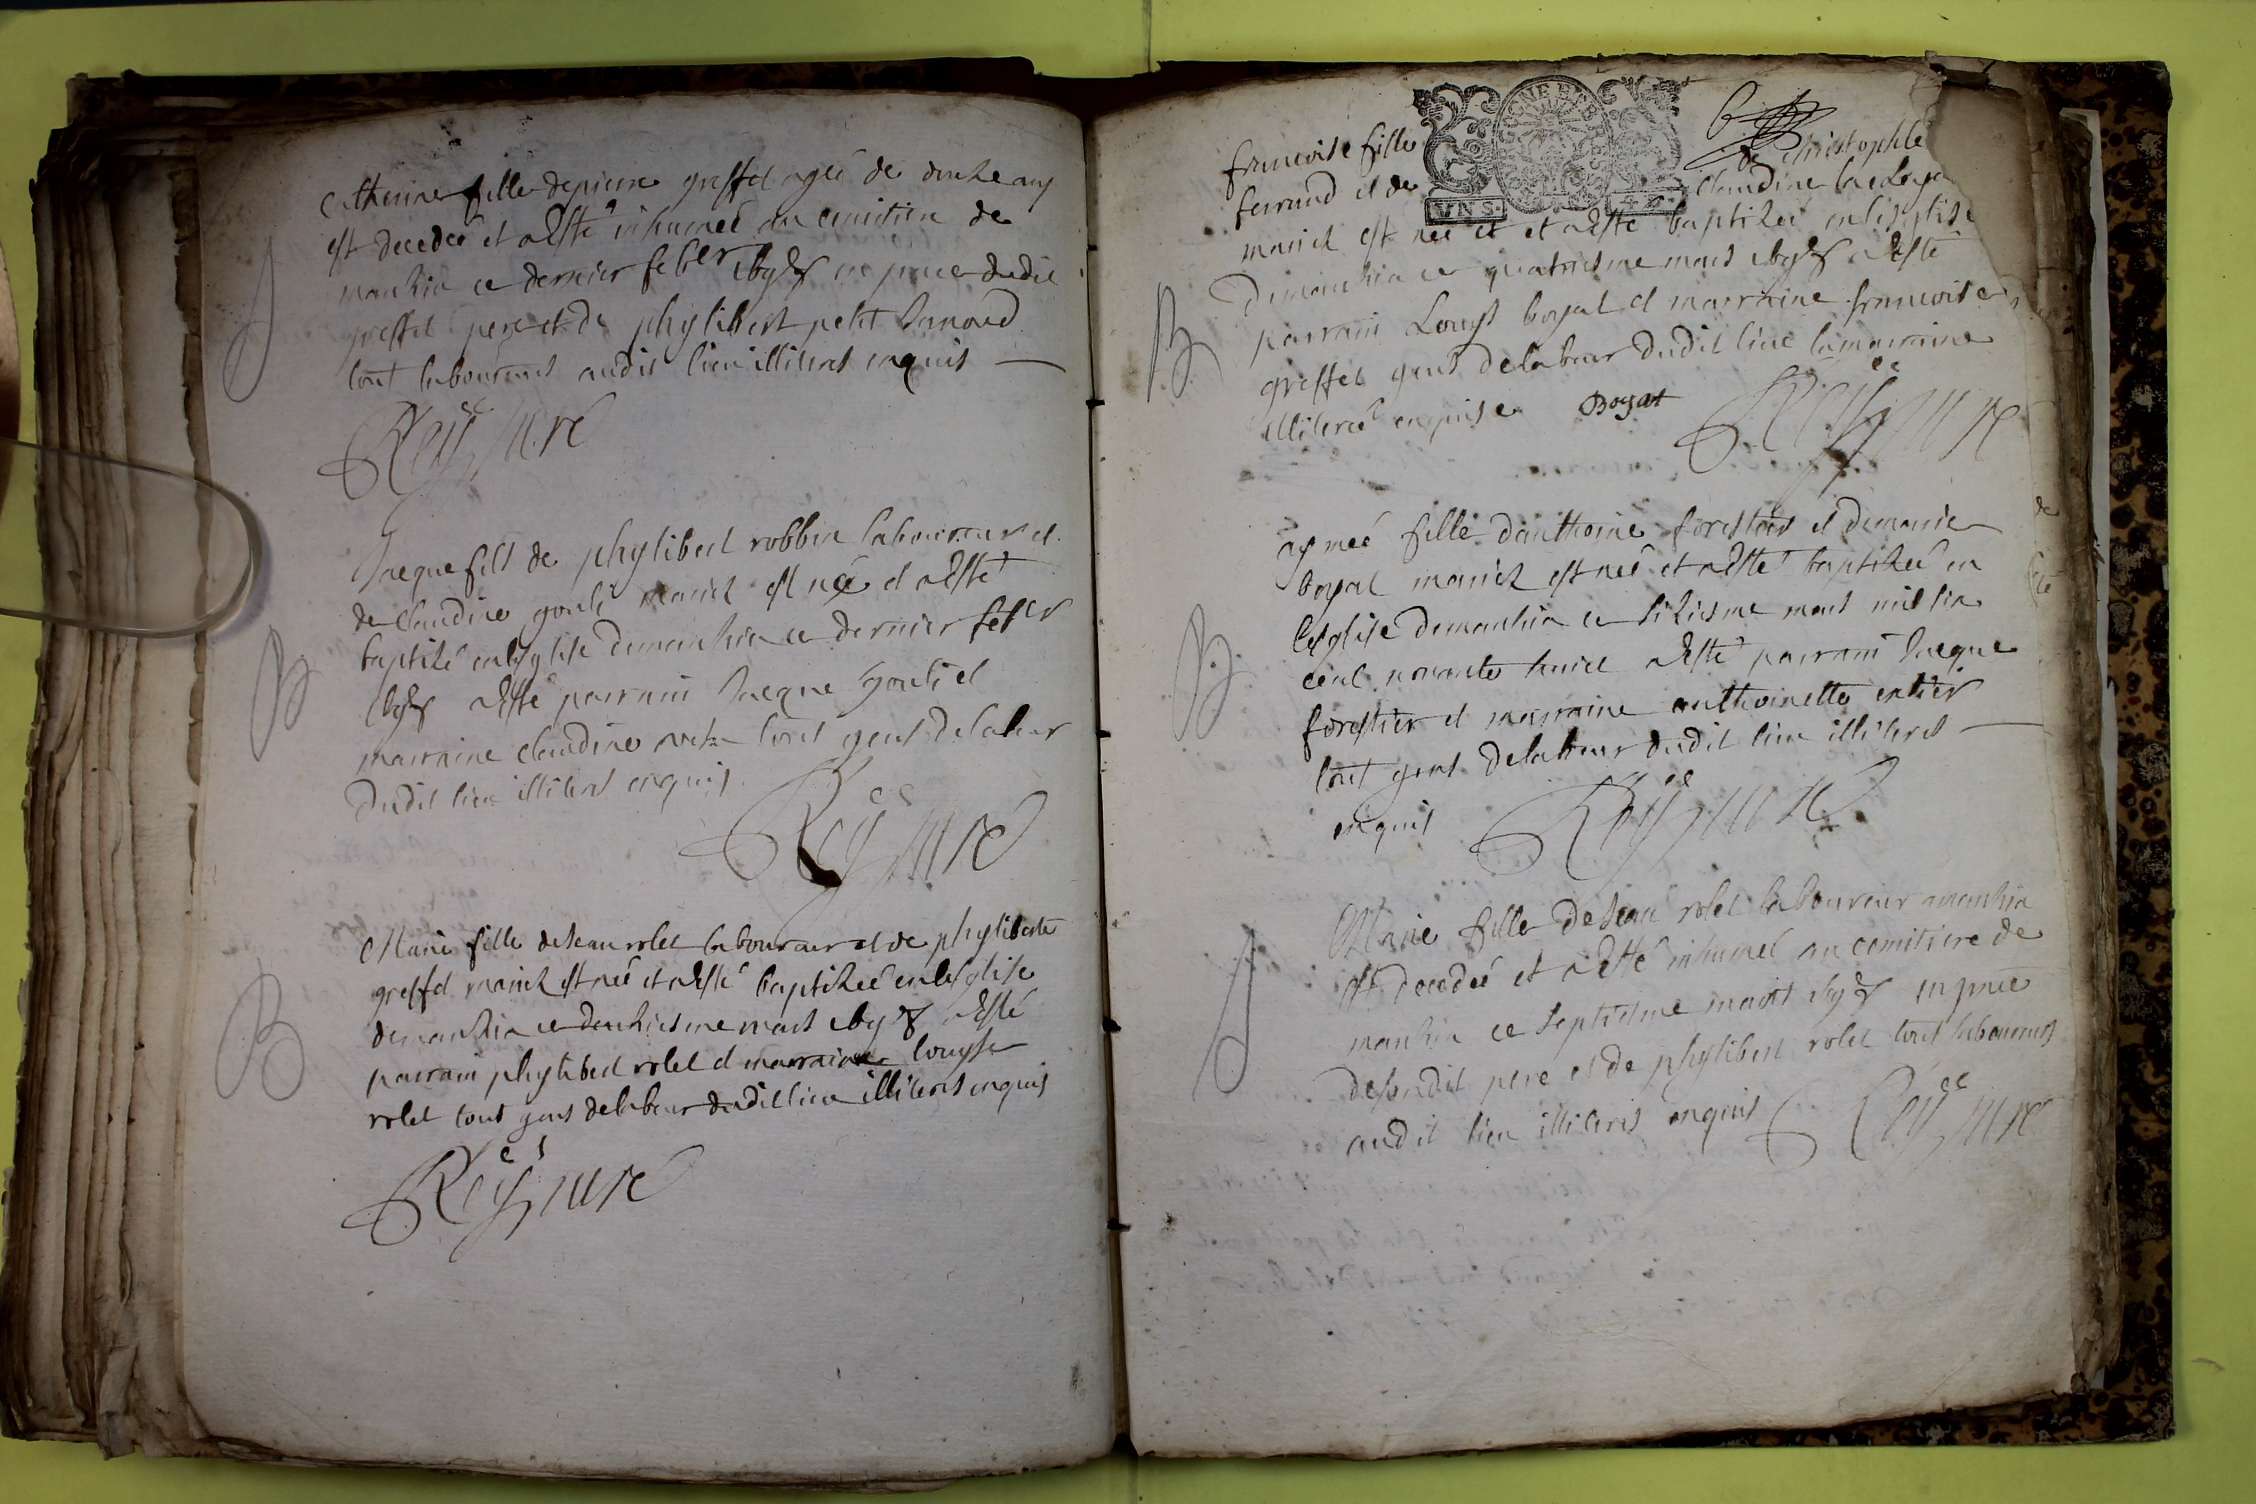 Catherine fille de pierre greffet agée de douze ans
est decedeé et a esté inhumeé au cemitiere de
manzia ce dernier feber en pnce dudit
greffet pere et de phylibert petit Janaud
tout laboureurs audit lieu illiteres enquis
Rey curé
Jacque fils de phylibert robbin laboureur et
de claudine gouli mariez est né et a esté
baptizé en lesglise de manzia ce dernier feber
a esté parrain Jacque gouli et
marraine claudine tous gens de labeur
dudit lieu illiteres enquis
Rey curé
Marie fille de Jean rolet laboureur et de phyliberte
greffet mariez est neé et a esté baptizeé en lesglise
de manzia ce deuziesme mars a esté
parrain phylibert rolet et marraine louyse
rolet tous gens de labeur dudit lieu illiteres enquis
Rey curé
francoise fille de christophle
ferrand et de claudine
mariez est neé et et a esté baptizeé en lesglise
de manzia ce quatriesme mars a esté
parrain Louys boyat et marraine francoise
greffet gens de labeur dudit lieu la marraine
illitereé enquise Boyat
Rey curé
aymeé fille danthoine forestier et de marie
boyat mariez est neé et a esté baptizeé en
lesglise de manzia ce siziesme mars mil six
cent nonante huict a esté parrain Jacque
forestier et marraine anthoinette
tout gens de labeur dudit lieu illiteres
enquis Rey curé
Marie fille de Jean rolet laboureur a manzia
est decedeé et a esté inhumeé au cemitiere de
manzia ce septiesme mars en pnce
desondit pere et de phylibert rolet tout laboureurs
audit lieu illiteres enquis Rey curé